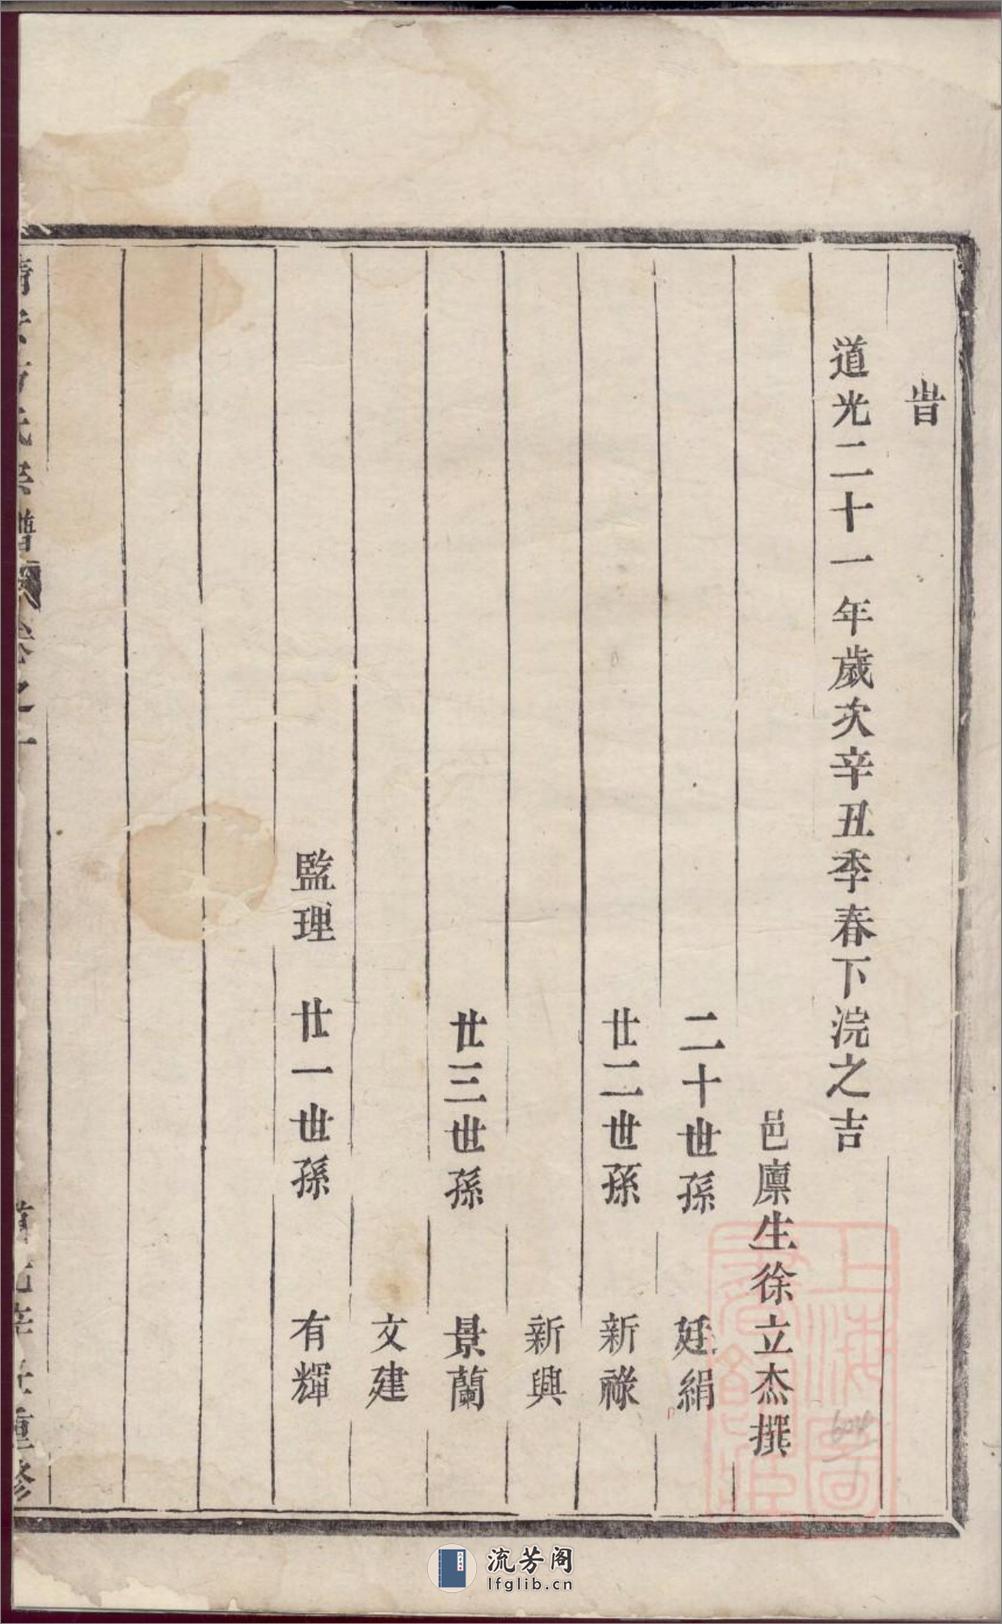 旹
道光二十一年歲次辛丑季春下浣之吉
邑廩生徐立杰撰
二十世孫 廷絹
廿二世孫 新祿
新興
廿三世孫 景蘭
文建
監理 廿一世孫 有輝
氏宗譜 卷之一
重修
上海圖書館藏
604
流芳阁
lfglib.cn